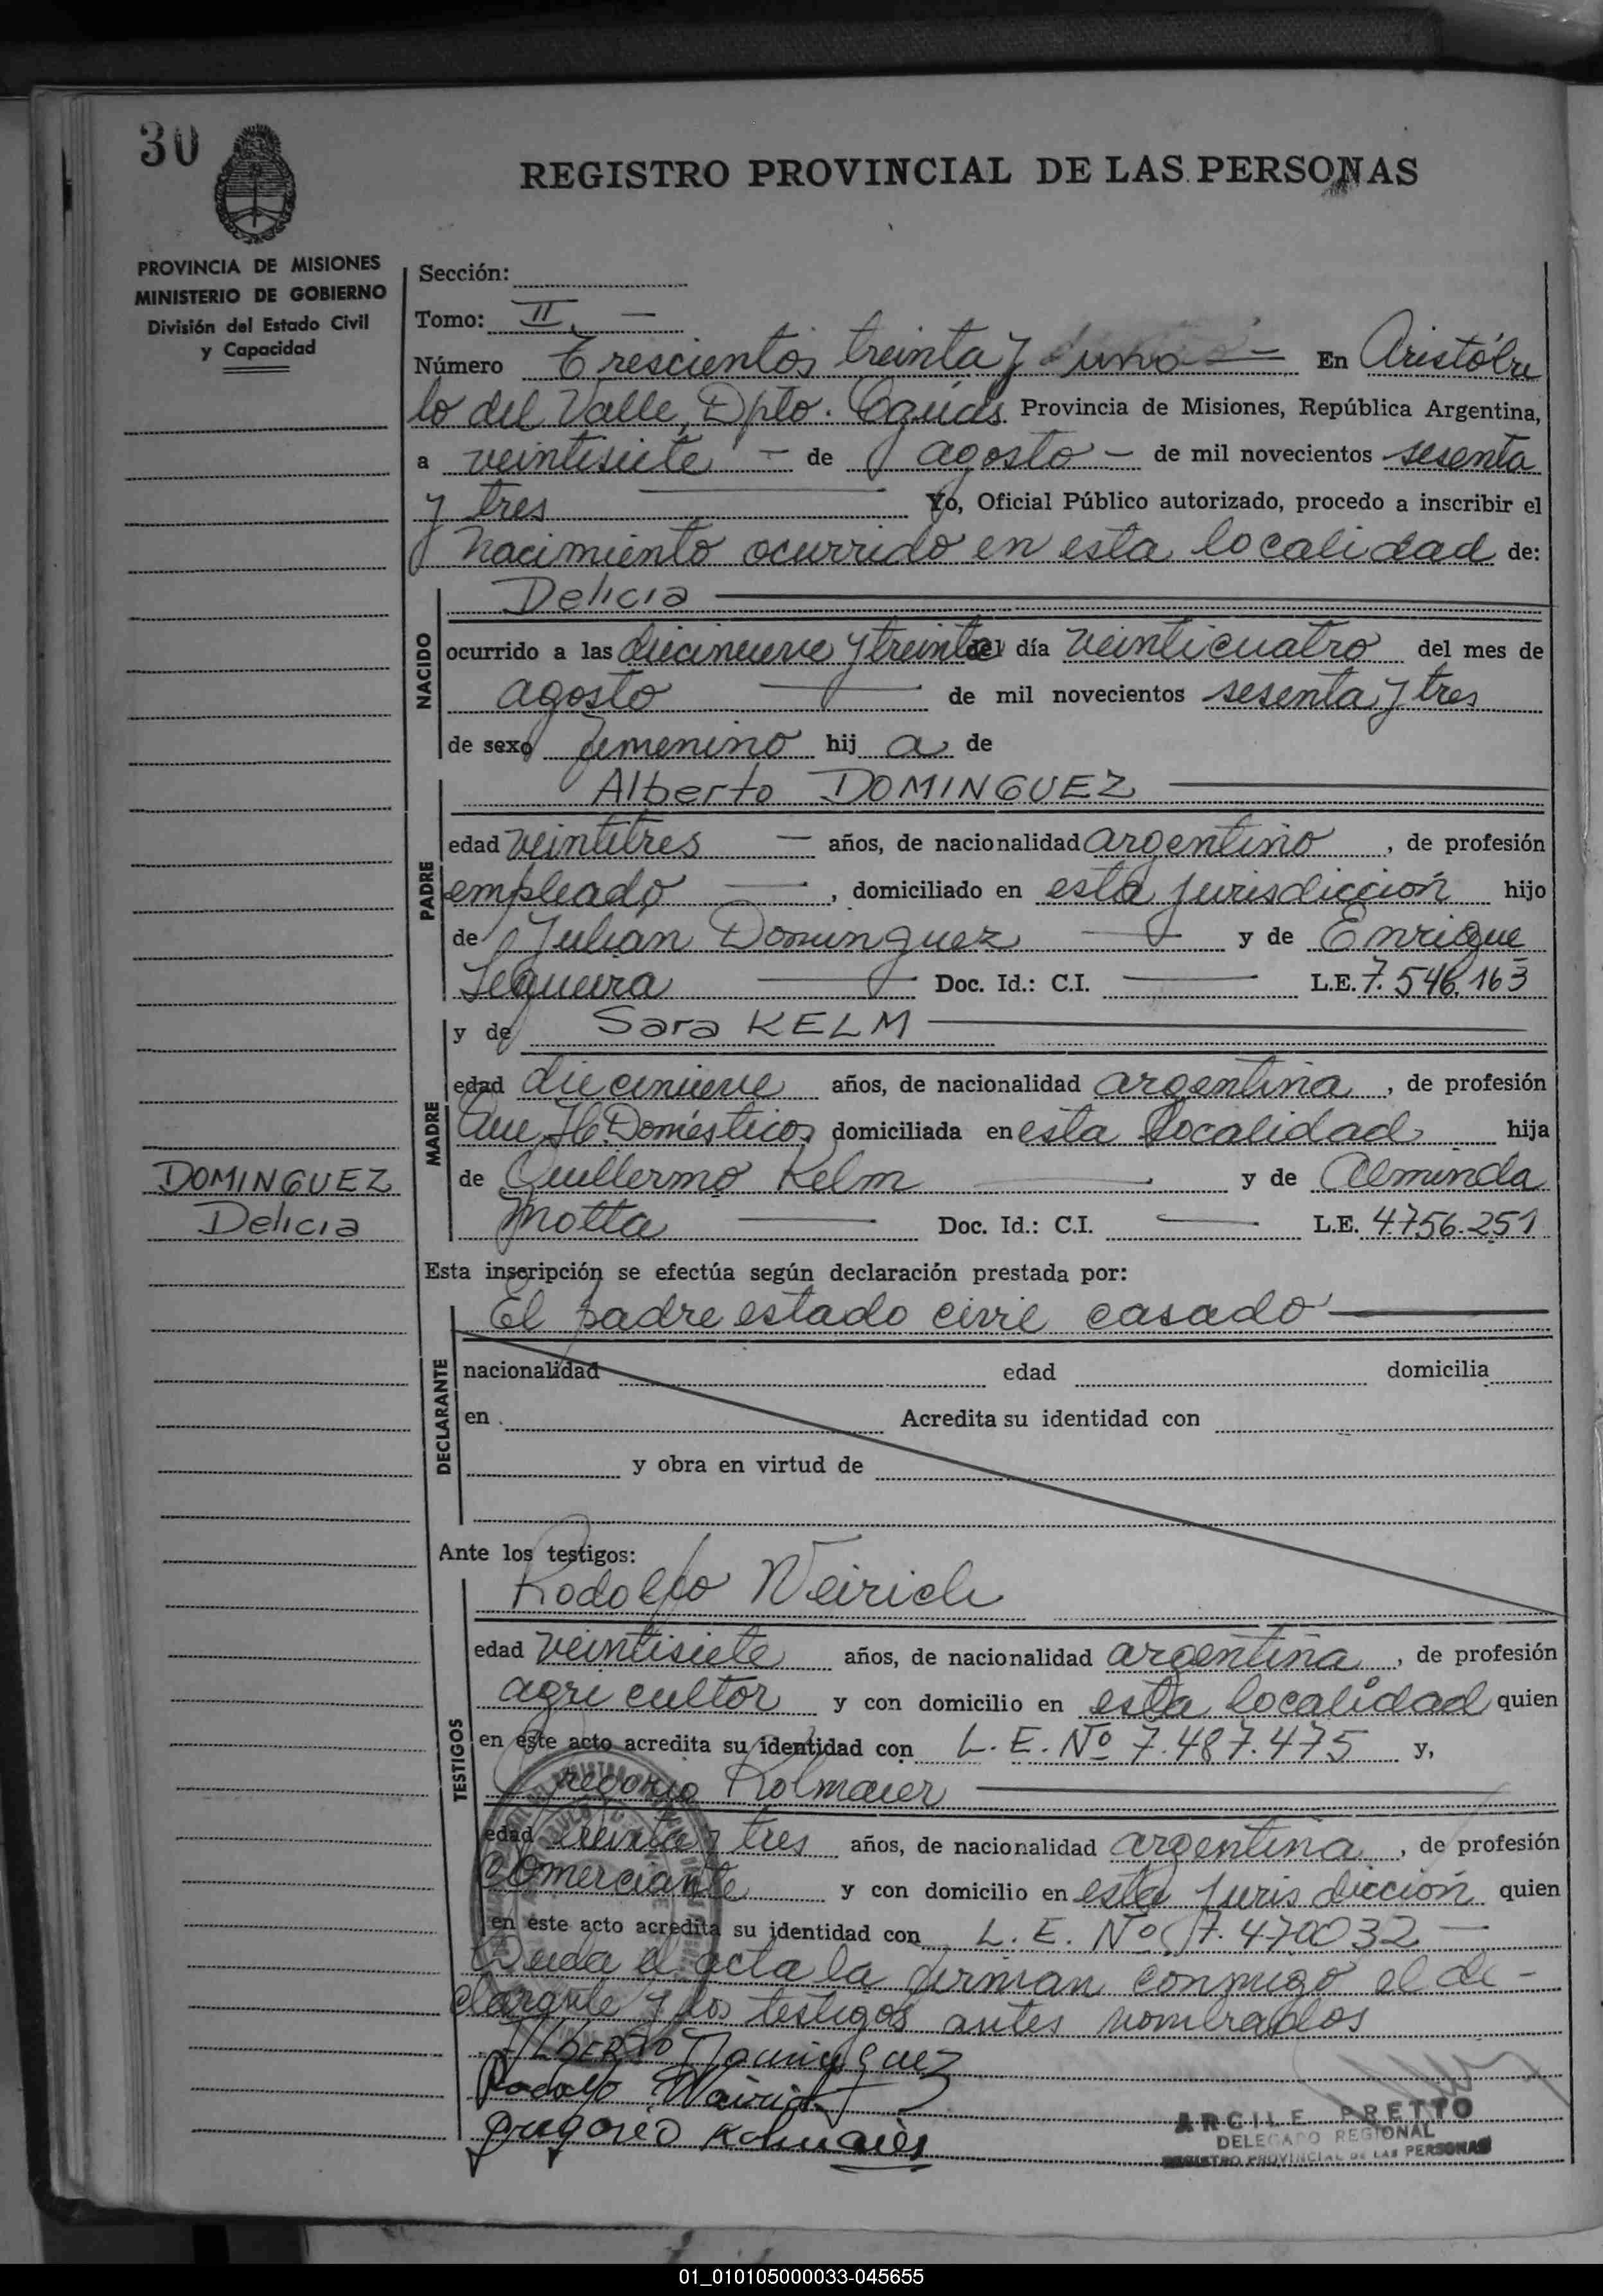 30
REGISTRO PROVINCIAL DE LAS PERSONAS
PROVINCIA DE MISIONES
MINISTERIO DE GOBIERNO
División del Estado Civil
y Capacidad
Sección:
Tomo: II
Número Trescientos treinta y uno En Aristóbu
lo del Valle, Dpto. Caguás. Provincia de Misiones, República Argentina,
a veintisiete de agosto de mil novecientos sesenta
y tres Yo, Oficial Público autorizado, procedo a inscribir el
nacimiento ocurrido en esta localidad de:
NACIDO
Delicia
ocurrido a las diecinueve y treinta del día veinticuatro del mes de
agosto de mil novecientos sesenta y tres
de sexo femenino hij a de
PADRE
Alberto DOMINGUEZ
edad veintitres años, de nacionalidad argentino, de profesión
empleado, domiciliado en esta jurisdicción hijo
de Julian Dominguez y de Enrique
Sequeira Doc. Id.: C.I. L.E. 7.546.163
MADRE
y de Sara KELM
edad diecinueve años, de nacionalidad argentina, de profesión
Domésticos domiciliada en esta localidad hija
de Guillermo Kelm y de Alminda
Motta Doc. Id.: C.I. L.E. 4.756.251
DOMINGUEZ
Delicia
Esta inscripción se efectúa según declaración prestada por:
DECLARANTE
El padre estado civil casado
nacionalidad edad domicilia
en Acredita su identidad con
y obra en virtud de
Ante los testigos:
TESTIGOS
Rodolfo Weirich
edad veintisiete años, de nacionalidad argentina, de profesión
agricultor y con domicilio en esta localidad quien
en este acto acredita su identidad con L. E. Nº 7.487.475 y,
Gregorio Kolmaier
edad treinta y tres años, de nacionalidad argentina, de profesión
comerciante y con domicilio en esta jurisdicción quien
en este acto acredita su identidad con L. E. Nº 7.470032
Leida el acta la firman conmigo el de-
clarante y los testigos antes nombrados
ALBERTO Dominguez
Rodolfo Weirich
Gregorio Kolmaier
ARCILE PRETTO
DELEGADO REGIONAL
REGISTRO PROVINCIAL DE LAS PERSONAS
01_010105000033-045655